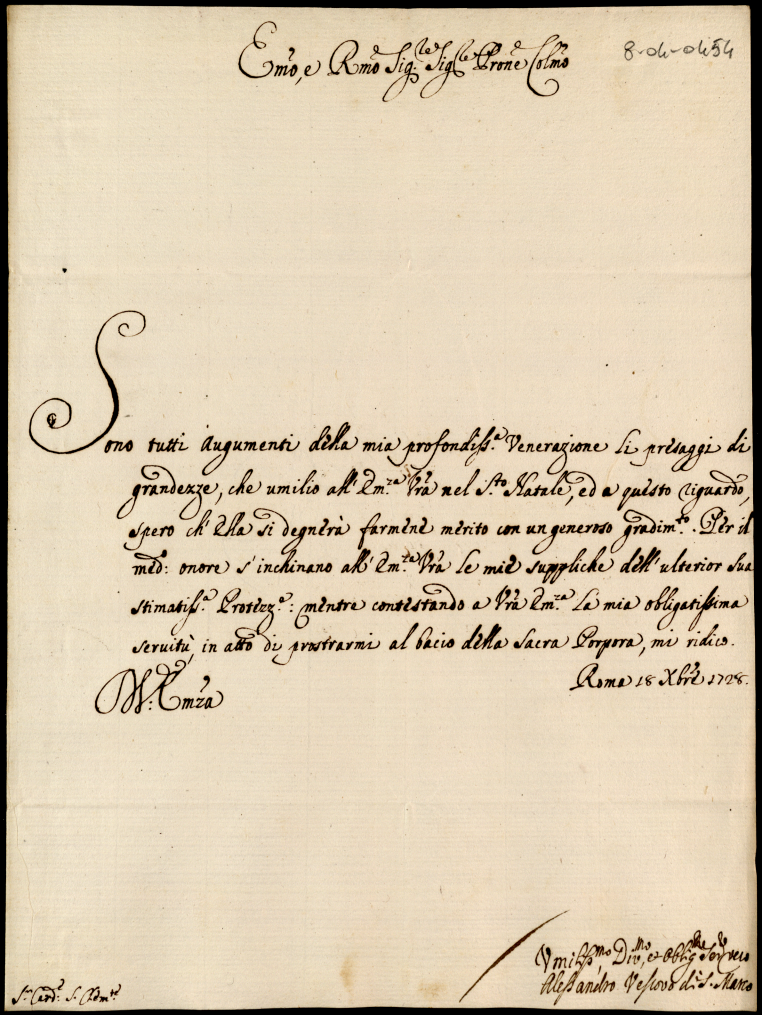 8-04-0454
Emo, e Rmo Sig.re Sig.re Prone Colmo
Sono tutti augumenti della mia profondiss.a Venerazione li presaggi di
grandezze, che umilio all' Em.za Vrã nel S.to Natale, ed a questo riguardo,
spero ch' Ella si degnerà farmene merito con un generoso gradim.to. Per il
med: onore s' inchinano all' Em.za Vrã le mie suppliche dell' ulterior sua
stimatiss.a Protezz.e: mentre contestando a Vrã Em.za la mia obligatissima
servitù, in atto di prostrarmi al bacio della Sacra Porpora, mi ridico.
Roma 18 Xbre 1728.
Emza
Umiliss.mo Div.mo, e Oblig.mo Ser.re vero
Alessandro Vescovo di S. Marco
S.r Card: